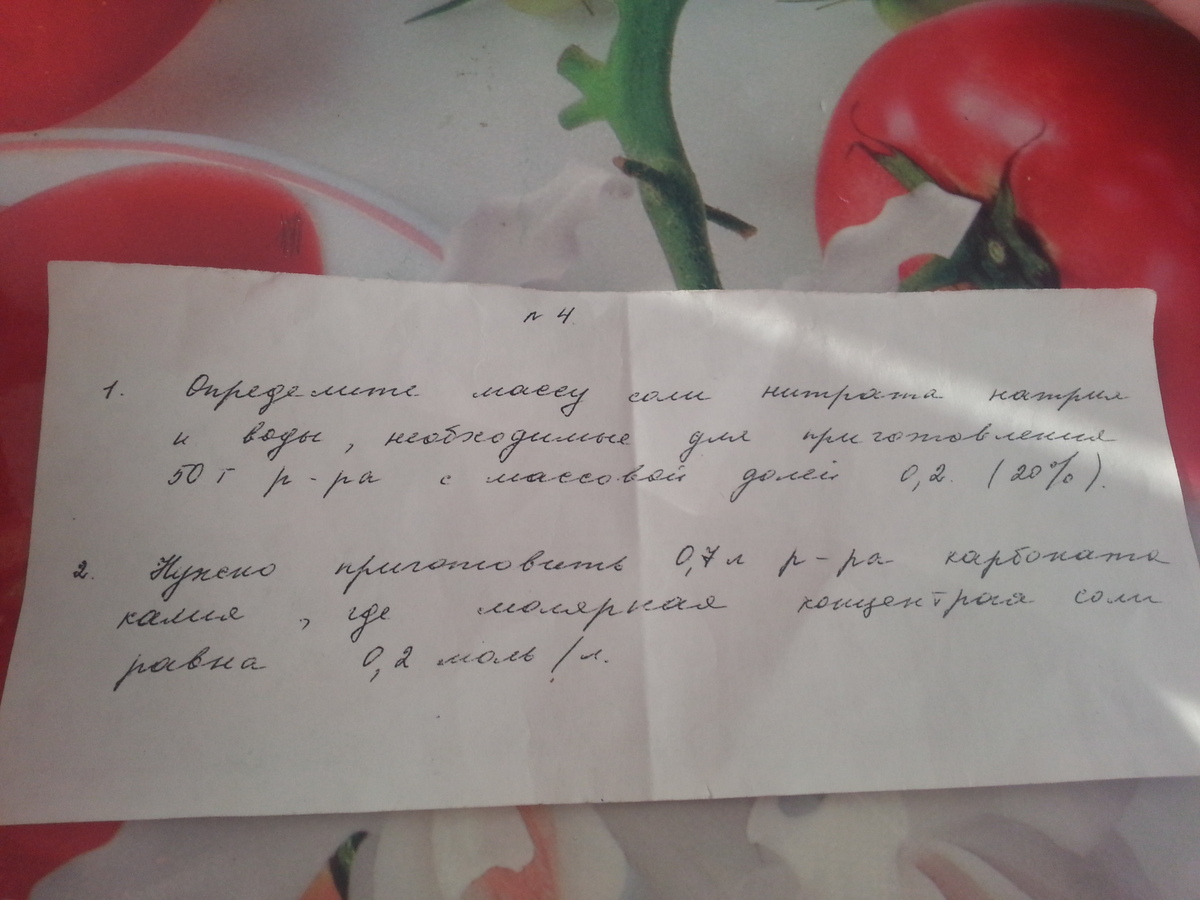 № 4.
1. Определите массу соли нитрата натрия
и воды, необходимые для приготовления
50 г р-ра с массовой долей 0,2. (20%).
2. Нужно приготовить 0,7 л р-ра карбоната
калия, где молярная концентрая соли
равна 0,2 моль/л.